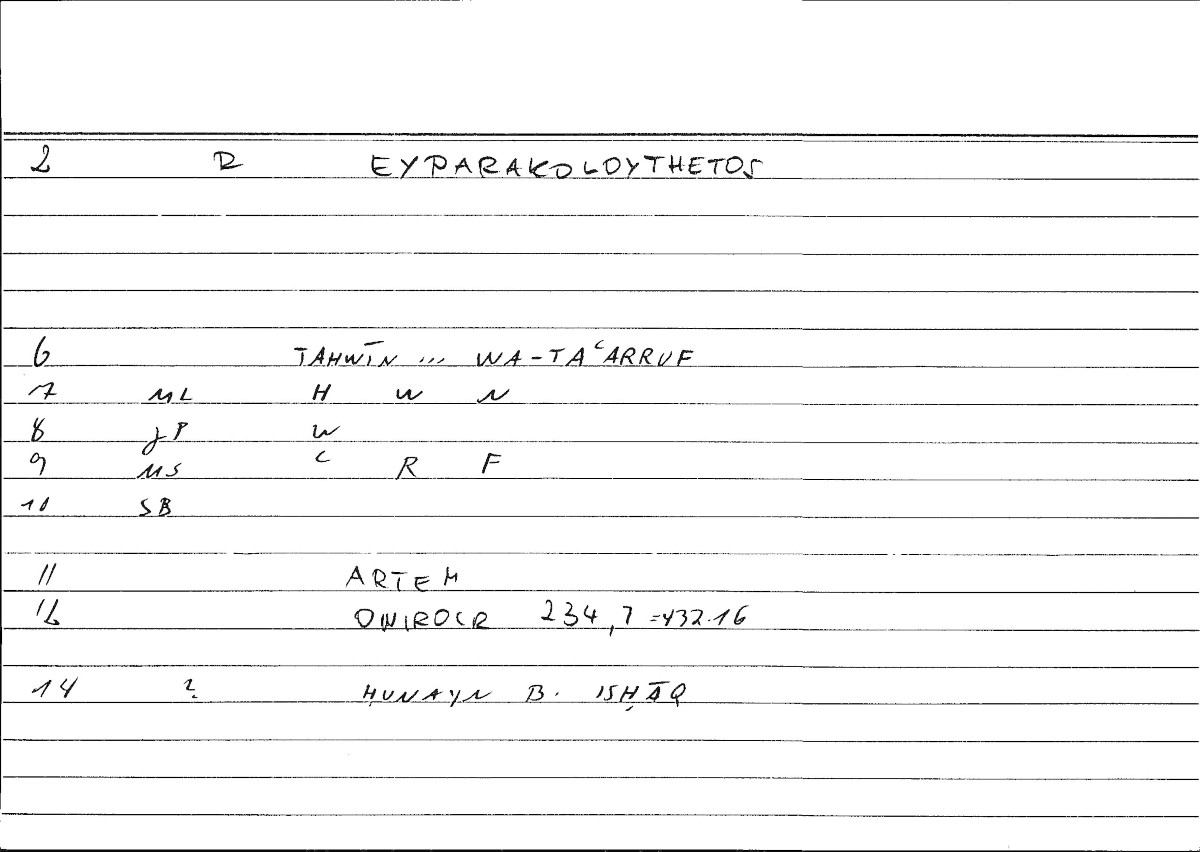 2 R EYPARAKOLOYTHETOS
6 TAHWĪN ... WA-TAʿARRUF
7 ML H W N
8 JP W
9 MS ʿ R F
10 SB
11 ARTEM
12 ONIROCR 234,7 = 432.16
14 ? ḤUNAYN B. ISḤĀQ